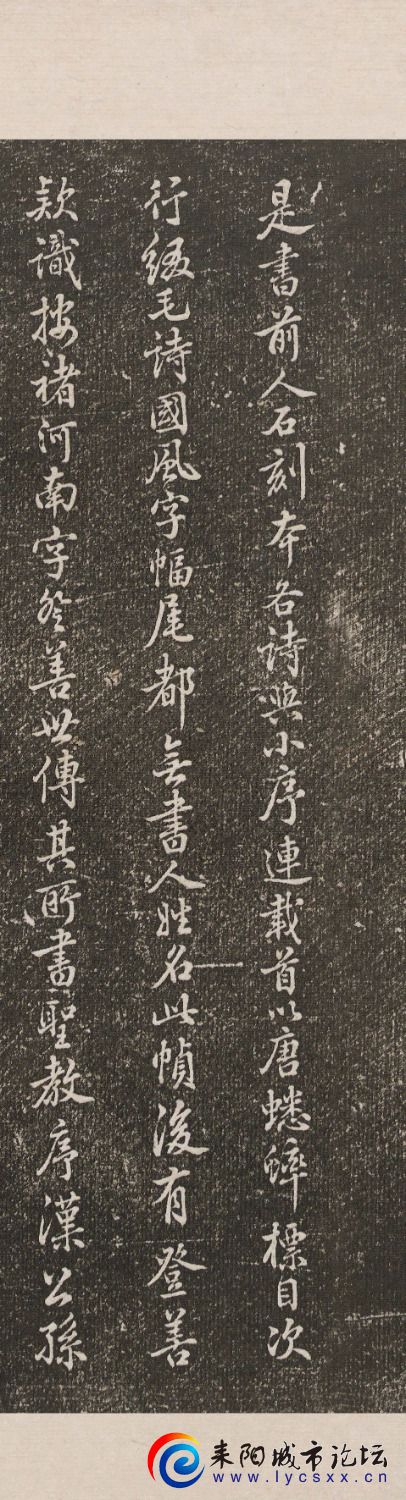 是書前人石刻本各詩與小序連載首以唐蟋蟀標目次
行綴毛詩國風字幅尾都無書人姓名此幀後有登善
款識按褚河南字登善世傳其所書聖教序漢公孫
耒阳城市论坛
www.lycsxx.cn